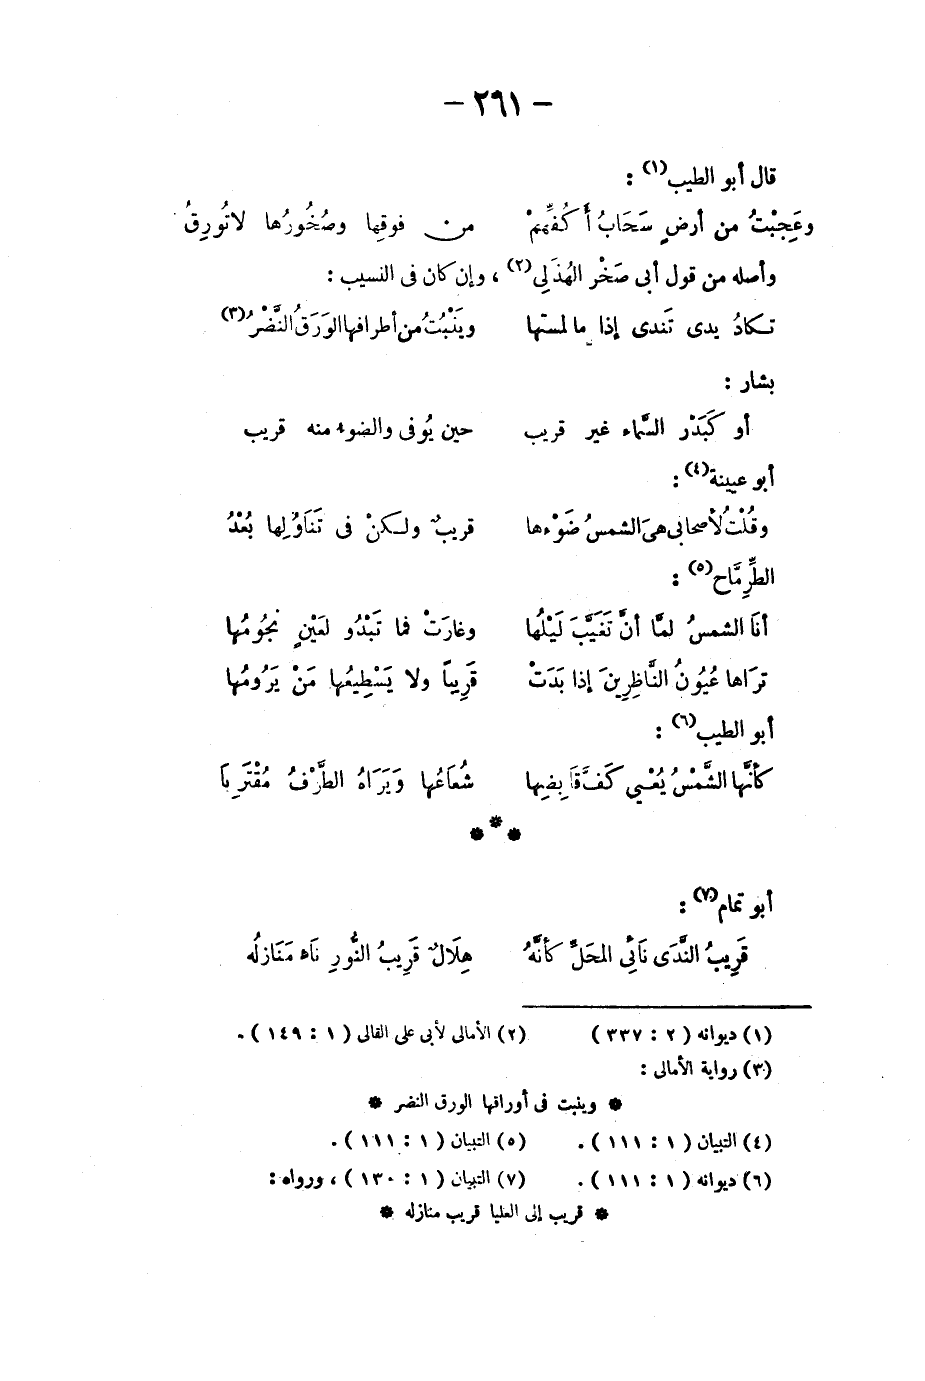 — ٢٦١ —
قال أبو الطيب(١) :
وعَجِبْتُ من أرضٍ سَحَابُ أَكُفِّهِمْ من فوقِها وصُخُورُها لاتُورِقُ
وأصله من قول أبى صَخْر الهُذَلِى(٢) ، وإن كان فى النسيب :
تكادُ يدى تَندى إذا مالمستها ويَنْبُتُ من أطرافها الوَرَقُ النَّضْرُ(٣)
بشار :
أو كَبَدْر السَّماء غير قريب حين يُوفى والضوء منه قريب
أبو عيينة(٤) :
وقُلْتُ لأصحابى هىَ الشمسُ ضَوْءها قريبٌ ولكنْ فى تَنَاوُلِها بُعْدُ
الطِّرِمَّاح(٥) :
أنَا الشمسُ لمَّا أنَّ تَغَيَّبَ لَيْلُها وغارَتْ فما تَبْدُو لعَيْنٍ نجُومُها
ترَاها عُيُونُ النَّاظِرِينَ إذا بَدَتْ قَرِيباً ولا يَسْطِيعُها مَنْ يَرُومُها
أبو الطيب(٦) :
كأنَّها الشَّمْسُ يُعْيِي كَفَّ قَابِضِها شُعَاعُها وَيَرَاهُ الطَّرْفُ مُقْتَرِبَا
* * *
أبو تمام(٧) :
قَرِيبُ النَّدَى نَائِى المحَلِّ كأنَّهُ هِلَالٌ قَرِيبُ النُّورِ نَاءٍ مَنَازلُه
(١) ديوانه ( ٢ : ٣٣٧ ) (٢) الأمالى لأبى على القالى ( ١ : ١٤٩ ) .
(٣) رواية الأمالى :
* وينبت فى أوراقها الورق النضر *
(٤) التبيان ( ١ : ١١١ ) . (٥) التبيان ( ١ : ١١١ ) .
(٦) ديوانه ( ١ : ١١١ ) . (٧) التبيان ( ١ : ١٣٠ ) ، ورواه :
* قريب إلى العليا قريب منازله *